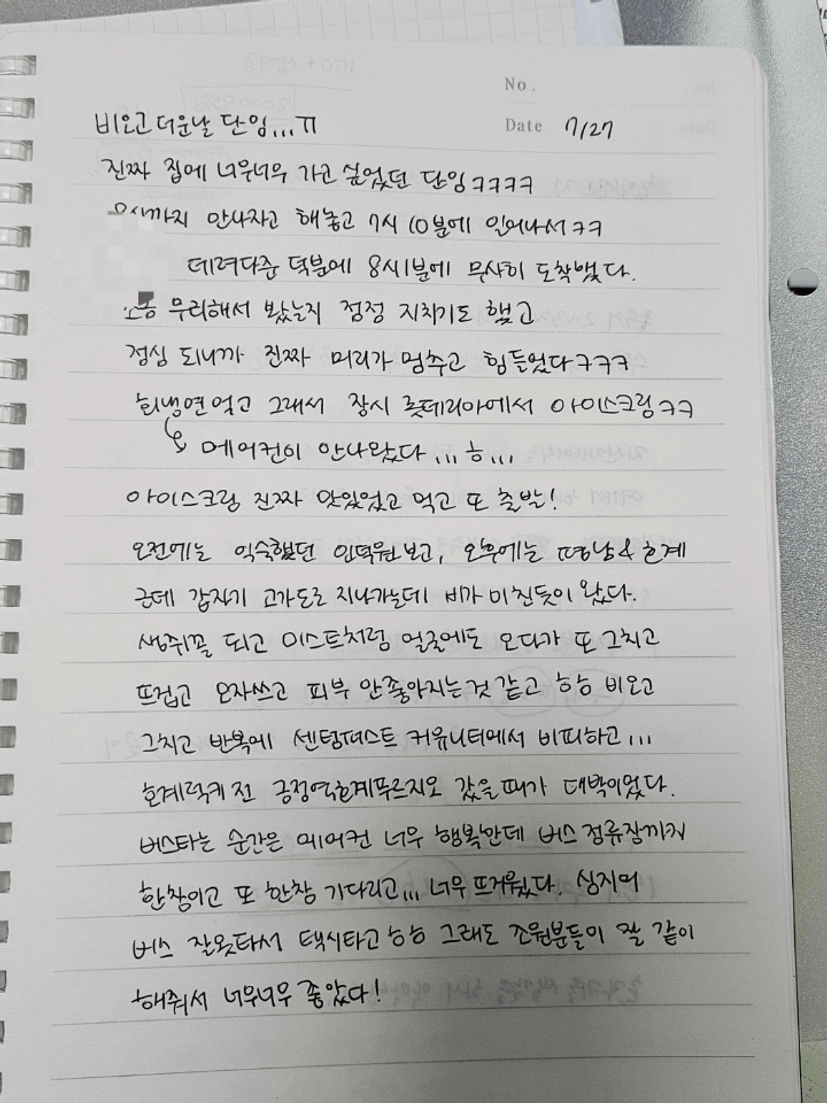 No.
비오고 더운날 단임...ㅠ
Date 7/27
진짜 집에 너무너무 가고 싶었던 단임ㅋㅋㅋㅋ
까지 만나자고 해놓고 7시 10분에 일어나서ㅋㅋ
데려다준 덕분에 8시1분에 무사히 도착했다.
무리해서 봤는지 점점 지치기도 했고
점심 되니까 진짜 머리가 멈추고 힘들었다ㅋㅋㅋ
회냉면먹고 그래서 잠시 롯데리아에서 아이스크림ㅋㅋ
에어컨이 안나왔다...ㅎ...
아이스크림 진짜 맛있었고 먹고 또 출발!
오전에는 익숙했던 인덕원보고, 오후에는 평남&호계
근데 갑자기 고가도로 지나가는데 비가 미친듯이 왔다.
생쥐꼴 되고 미스트처럼 얼굴에도 오다가 또 그치고
뜨겁고 모자쓰고 피부 안좋아지는것 같고 ㅎㅎ 비오고
그치고 반복에 센텀퍼스트 커뮤니티에서 비피하고...
호계럭키 전 금정역호계푸르지오 갔을때가 대박이었다.
버스타는 순간은 에어컨 너무 행복한데 버스 정류장까지
한참이고 또 한참 기다리고... 너무 뜨거웠다. 심지어
버스 잘못타서 택시타고 ㅎㅎ 그래도 조원분들이 잘 같이
해줘서 너무너무 좋았다!